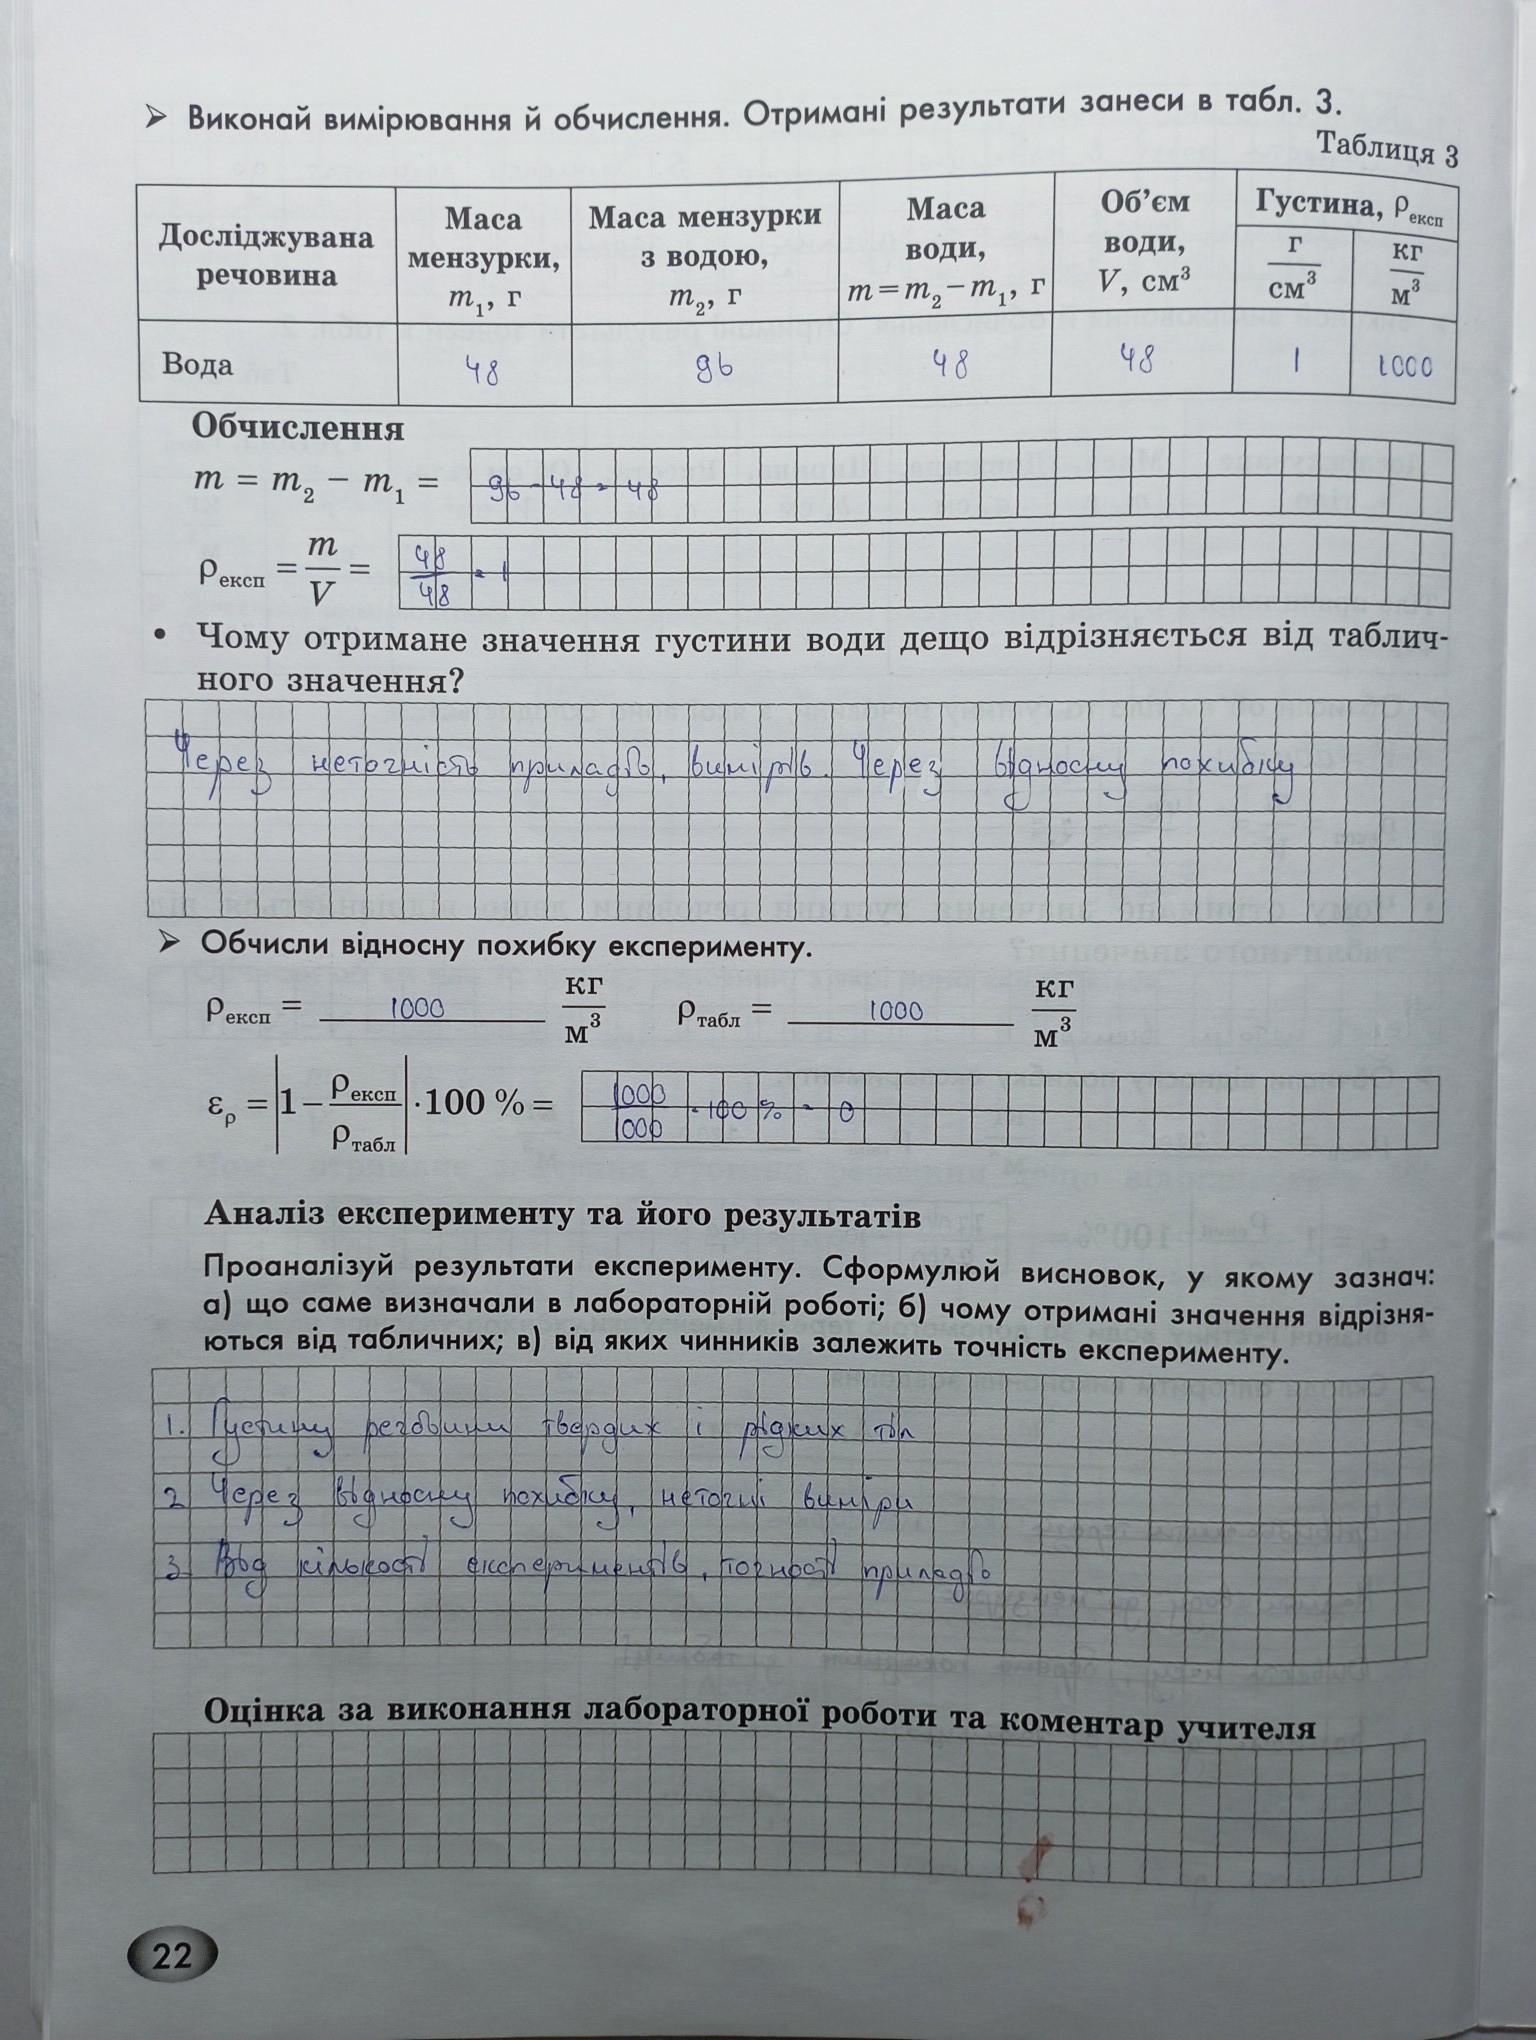 ➤ Виконай вимірювання й обчислення. Отримані результати занеси в табл. 3.
Таблиця 3
Досліджувана речовина | Маса мензурки, m₁, г | Маса мензурки з водою, m₂, г | Маса води, m = m₂ – m₁, г | Об’єм води, V, см³ | Густина, ρексп г/см³ | кг/м³
Вода | 48 | 96 | 48 | 48 | 1 | 1000
Обчислення
m = m₂ – m₁ = 96 - 48 = 48
ρексп = m/V = 48/48 = 1
• Чому отримане значення густини води дещо відрізняється від таблич-
ного значення?
Через неточність приладів, вимірів. Через відносну похибку
➤ Обчисли відносну похибку експерименту.
ρексп = 1000 кг/м³ ρтабл = 1000 кг/м³
ερ = |1 – ρексп/ρтабл| · 100 % = 1000/1000 · 100 % = 0
Аналіз експерименту та його результатів
Проаналізуй результати експерименту. Сформулюй висновок, у якому зазнач:
а) що саме визначали в лабораторній роботі; б) чому отримані значення відрізня-
ються від табличних; в) від яких чинників залежить точність експерименту.
1. Густину речовини твердих і рідких тіл
2 Через відносну похибку, неточні виміри
3 Від кількості експериментів, точності приладів
Оцінка за виконання лабораторної роботи та коментар учителя
22